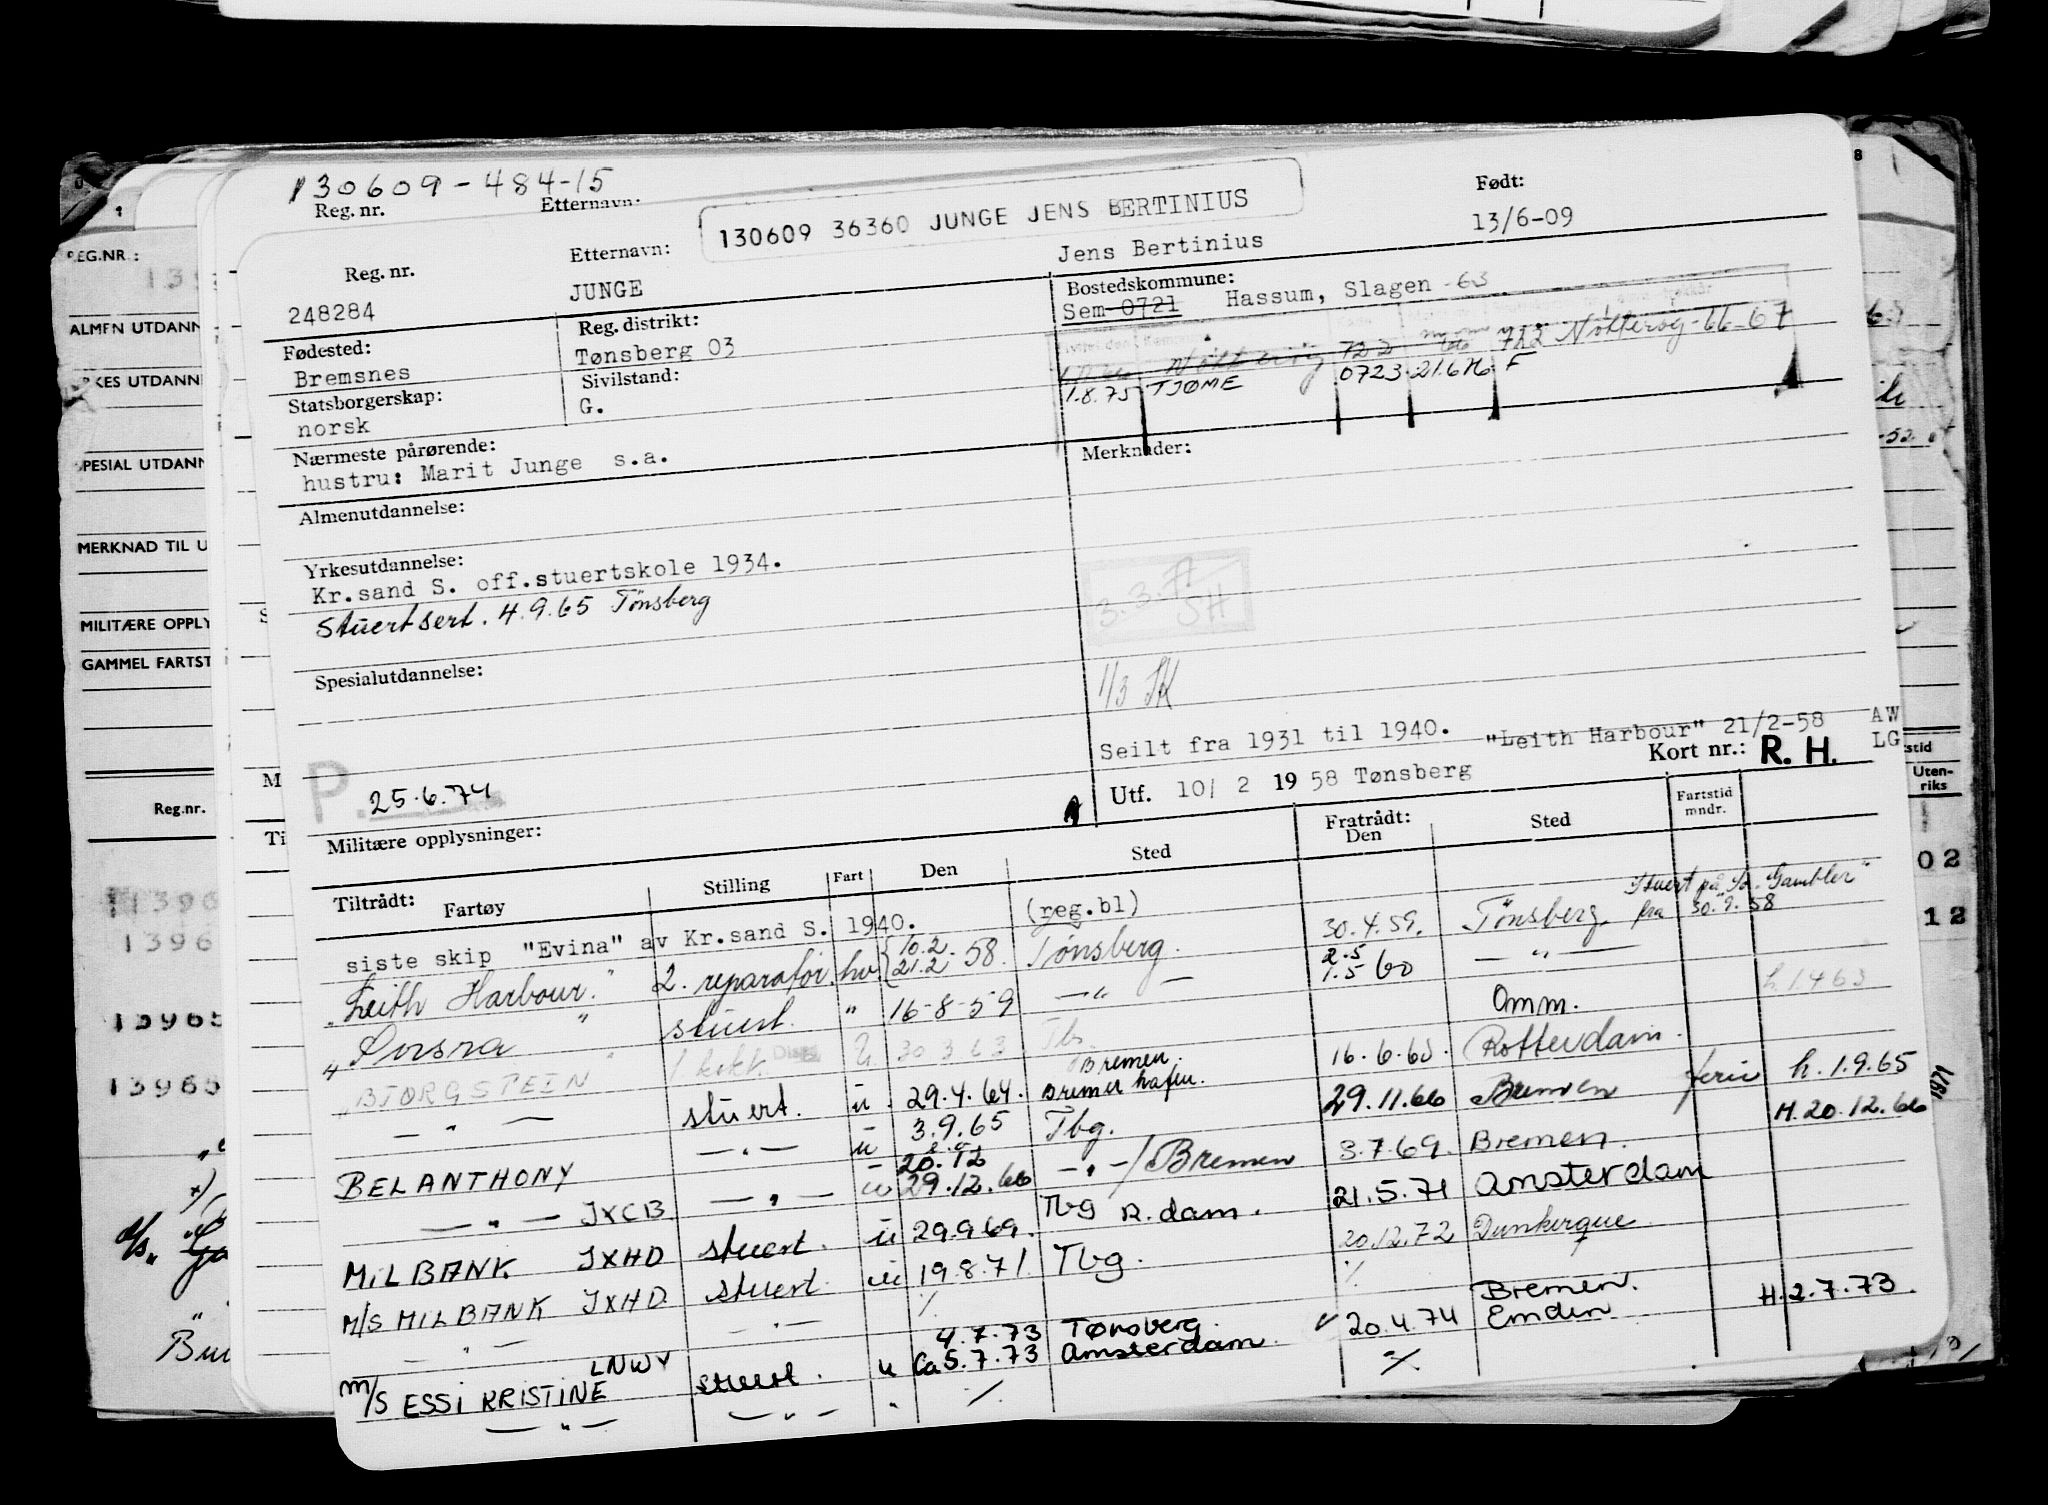 130609-484-15
Reg. nr.
Etternavn:
130609 36360 JUNGE JENS BERTINIUS
Født:
13/6-09
Reg. nr.
248284
Etternavn:
JUNGE
Jens Bertinius
Fødested:
Bremsnes
Reg. distrikt:
Tønsberg 03
Bostedskommune:
Sem 0721 Hassum, Slagen -63
722 722 Nøtterøy-66-67
1.8.75 TJØME 0723 21.6.76 F
Statsborgerskap:
norsk
Sivilstand:
G.
Nærmeste pårørende:
hustru: Marit Junge s.a.
Merknader:
Almenutdannelse:
Yrkesutdannelse:
Kr.sand S. off.stuertskole 1934.
Stuertsert. 4.9.65 Tönsberg
Spesialutdannelse:
1/3 SK
Seilt fra 1931 til 1940. "Leith Harbour" 21/2-58 AW
LG
Kort nr.: R. H.
P. 25.6.74
Utf. 10/ 2 19 58 Tønsberg
Militære opplysninger:
Tiltrådt: Fartøy
Stilling
Fart
Den
Sted
Fratrådt:
Den
Sted
Fartstid
mndr.
siste skip "Evina" av Kr.sand S. 1940.
(reg.bl)
Stuert på "So. Gambler"
fra 30.9.58
"Leith Harbour." 2. reparatør. hv. 10.2 21.2 58 Tønsberg. 30.4.59. Tönsberg.
" " stuert. " 16-8-59 — " — 2.5 1.5 60 — " —
"BJORGSTEIN" 1. kokk. U. 30 3 63 Tbs. Amm. h. 1.4 63
— " — stuert. u. 29.4.64. Bremen. Bremerhafen. 16.6.65. Rotterdam.
BELANTHONY — " — u 3.9.65 Tbg. 29.11.66 Bremen ferie h. 1.9.65
— " — JXCB — " — u 20.12 29.12.66 — " —/Bremen 3.7.69. Bremen. H. 20.12.66
MILBANK JXHD stuert. u 29.9.69. Tbg R.dam. 21.5.71 Amsterdam
M/S MILBANK JXHD stuert. u 19.8.71. Tbg. 20.12.72 Dunkerque
— " — — " — % %
M/S ESSI KRISTINE LNWY stuert. u 4.7.73 Ca 5.7.73 Tønsberg. Amsterdam. 20.4.74 Bremen. Emden H. 2.7.73.
— " — — " — " % %
REG.NR.:
ALMEN UTDANN
SPESIAL UTDANN
MERKNAD TIL U
MILITÆRE OPPLY
GAMMEL FARTST
Reg.nr.
Uten-
riks
02
12
13965
13965